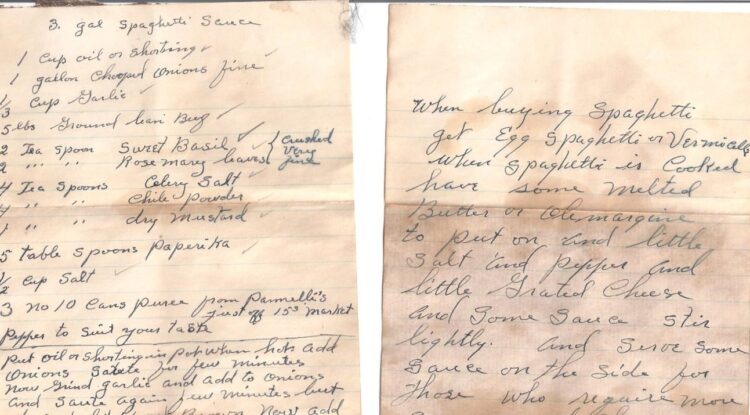 3. gal Spaghetti Sauce
1 Cup oil or Shorting
1 gallon Chopped onions fine
1/3 Cup Garlic
5 lbs Ground lean Buf
2 Tea Spoon Sweet Basil Crushed
2 " " " Rosemary leaves Very fine
4 Tea Spoons Celery Salt
" " Chile Powder
" " dry Mustard
5 table Spoons Paprika
1/2 Cup Salt
3 no 10 Cans puree from Pannelli's
Just off 15⁵ Market
Pepper to Suit your taste
Put oil or Shorting in Pot When hot add
Onions Saute for few minutes
Now Grind garlic and add to onions
And Saute again few minutes but
Brown Now add
When buying Spaghetti
get Egg Spaghetti or Vermicelli
When Spaghetti is Cooked
have some melted
Butter or Olemargine
to put on and little
Salt and pepper and
little Grated Cheese
And Some Sauce Stir
lightly. and Serve Some
Sauce on the Side for
Those Who require more